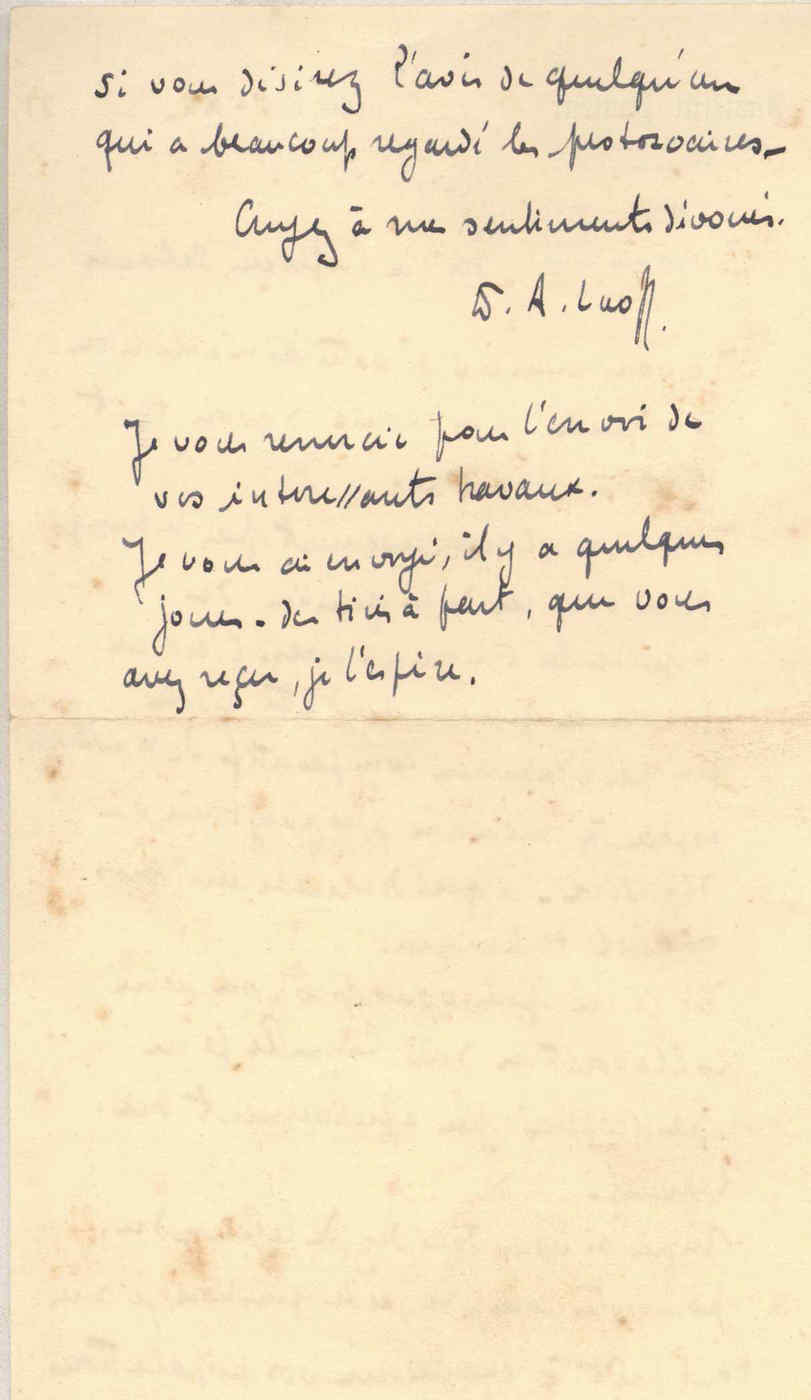 si vous désirez l'avis de quelqu'un
qui a beaucoup regardé les protozoaires_
Croyez à mes sentiments dévoués.
D. A. Lwoff.
Je vous remercie pour l'envoi de
vos intéressants travaux.
Je vous ai envoyé, il y a quelques
jours. des tirés à part, que vous
avez reçu, je l'espère.